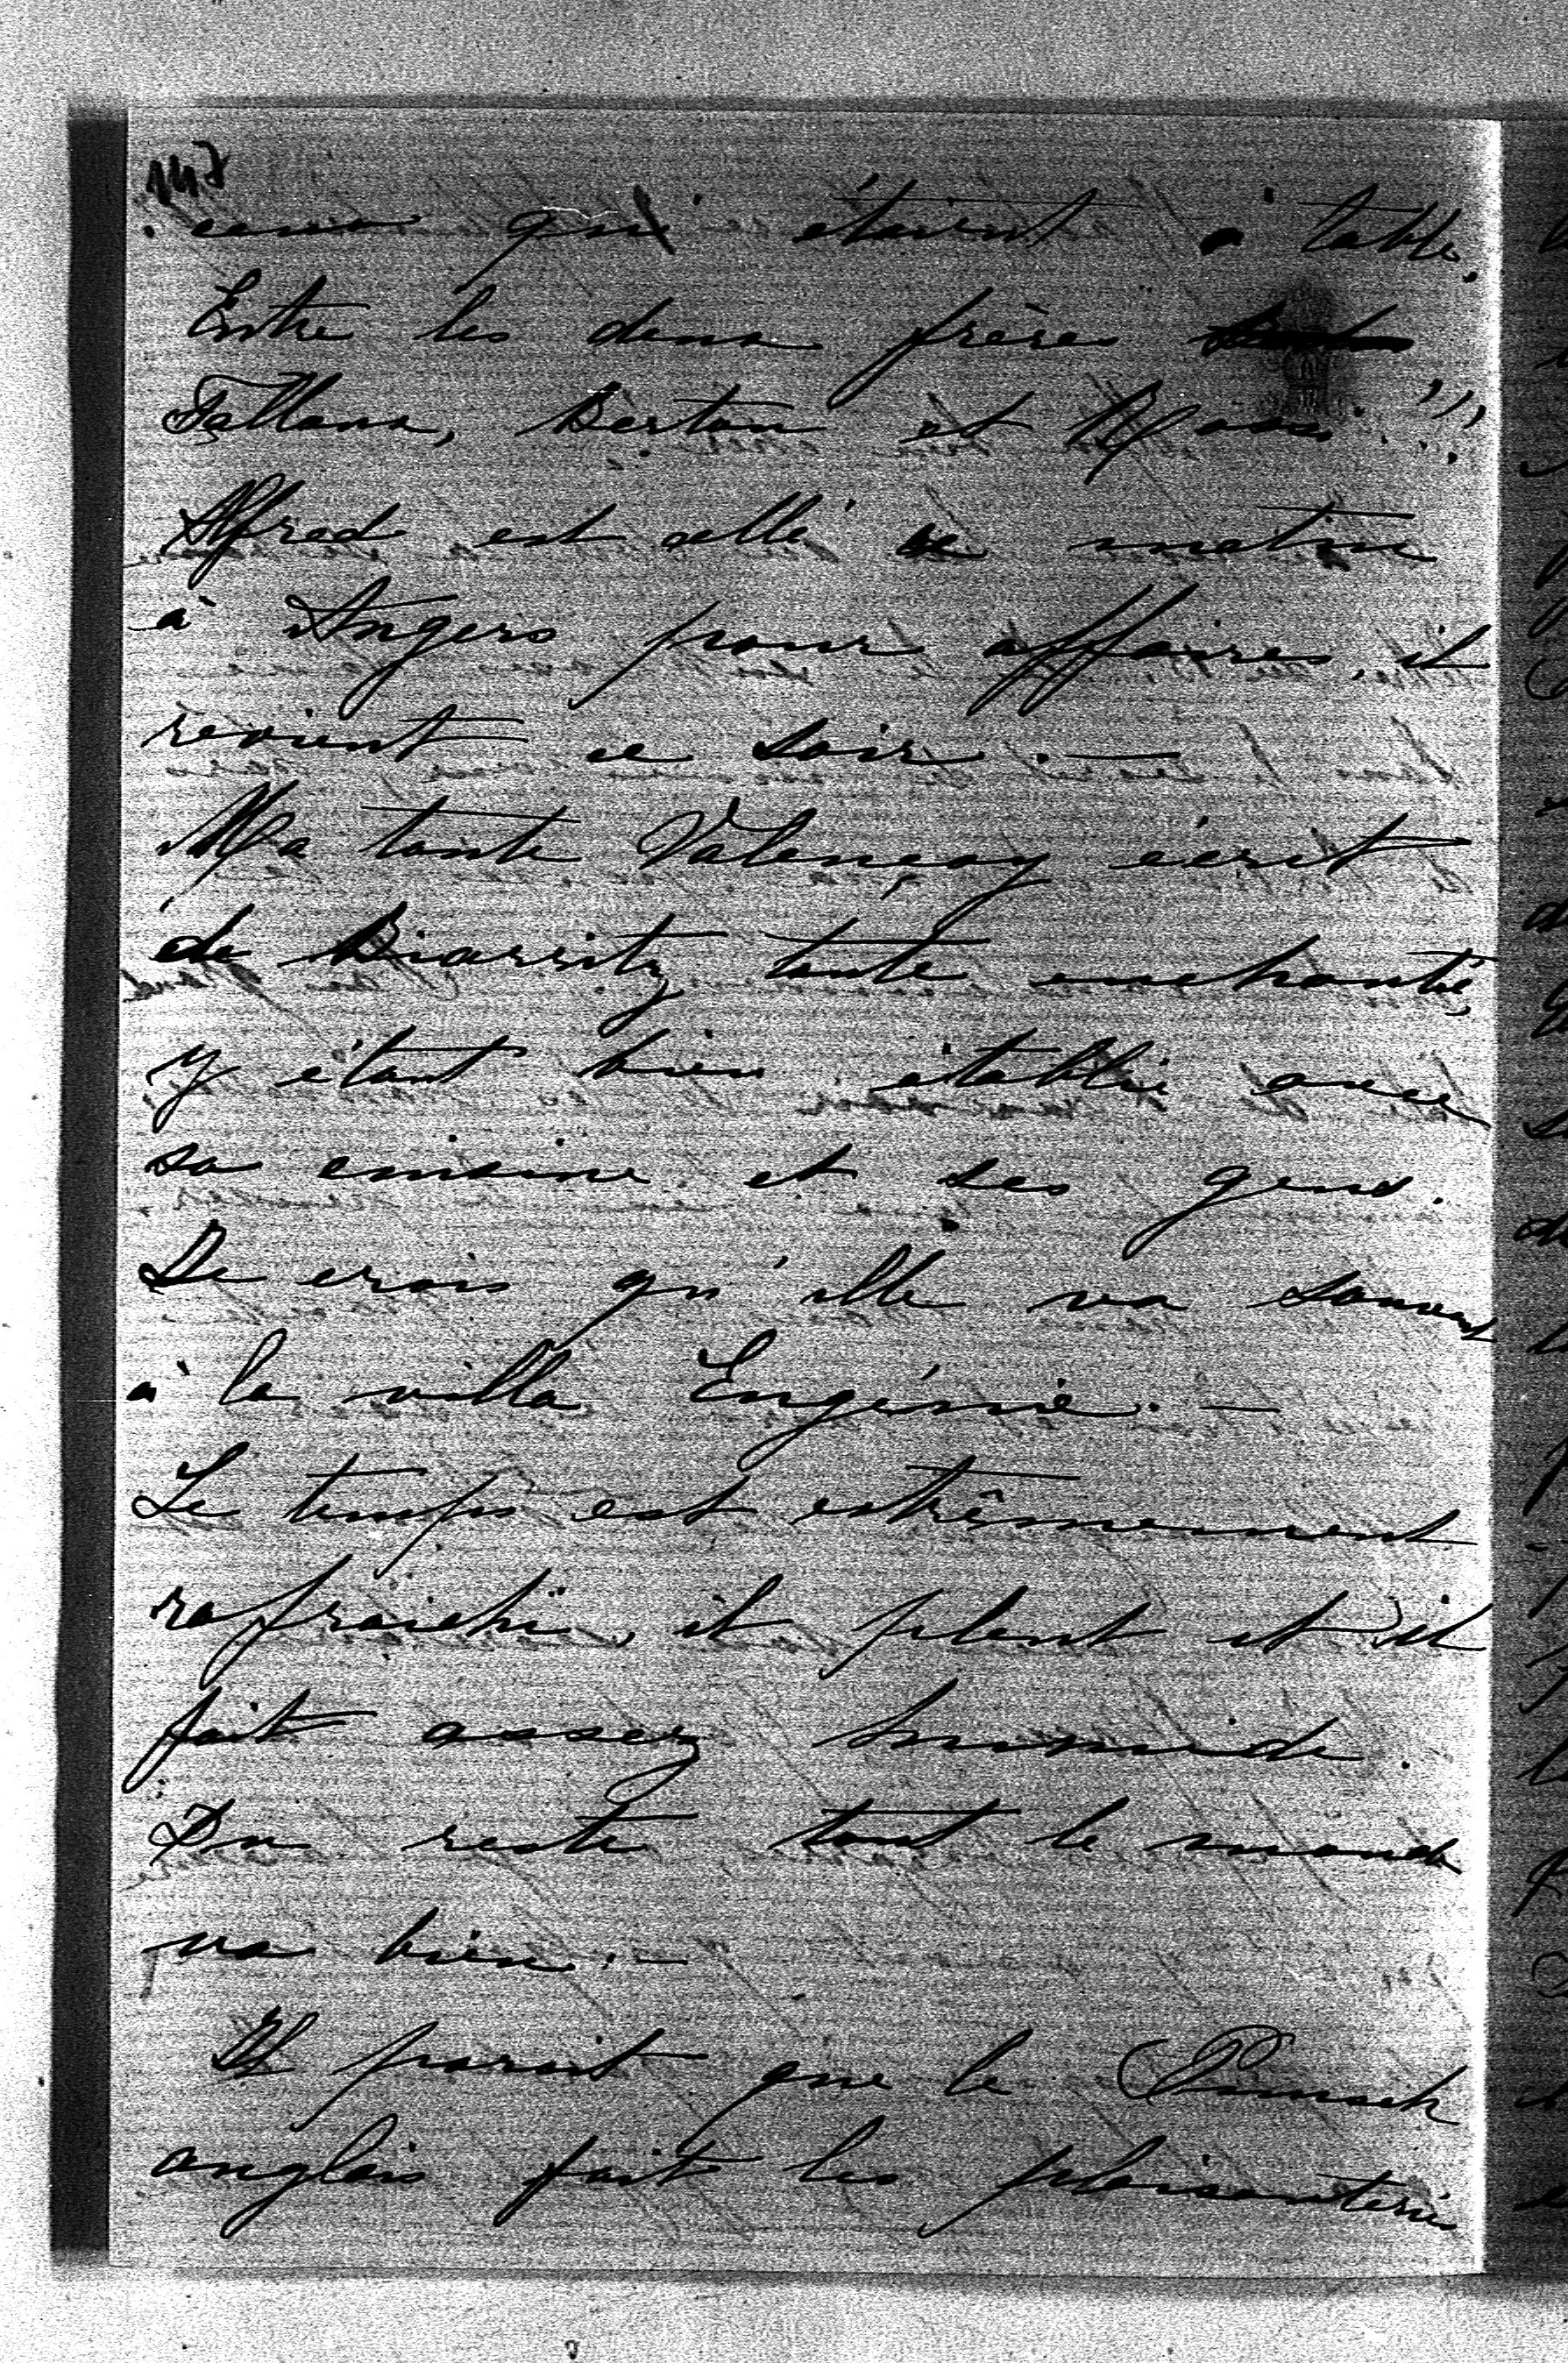 147
ceux qui étaient à table.
Entre les deux frères
Berton et
Alfred est allé ce matin
à Angers pour affaires, il
revient ce soir. —
Ma tante Valençay écrit
de Biarritz toute enchantée,
y étant bien établie avec
sa cuisine et ses gens.
Je crois qu'elle va souvent
à la villa Eugénie. —
Le temps est extrêmement
rafraichi, il pleut et il
fait assez humide.
Du reste tout le monde
va bien. —
Il parait que le Punsch
anglais fait les plaisanteries